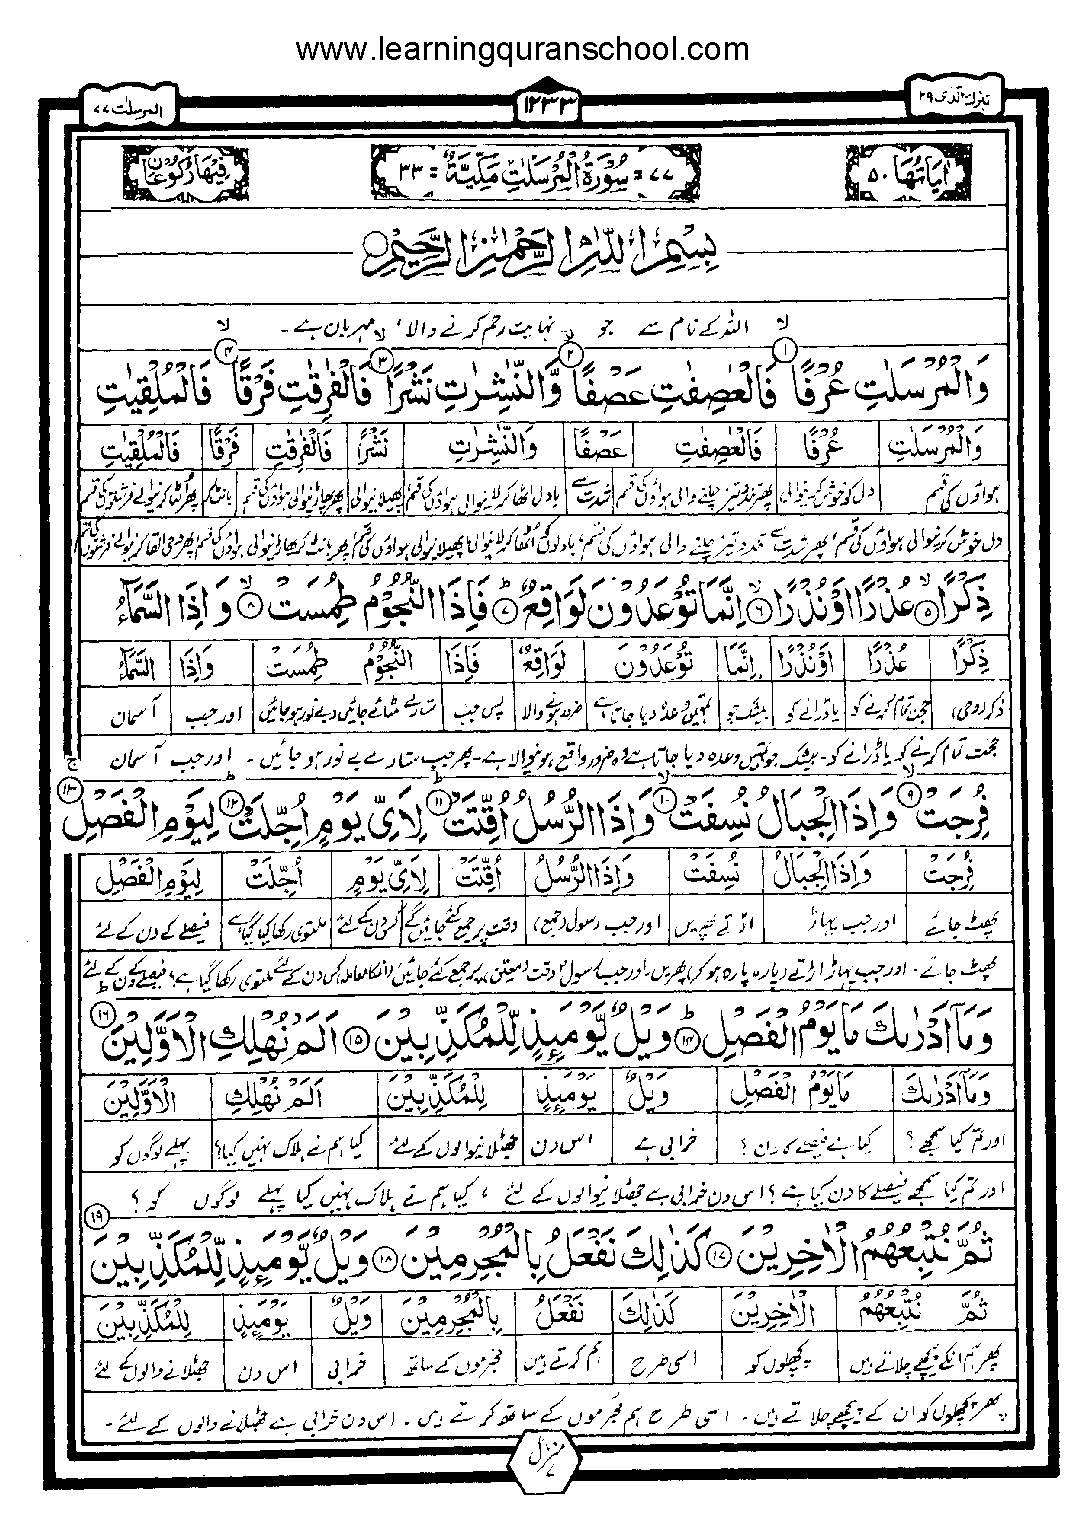 www.learningquranschool.com
تبٰرك الذی ۲۹
۱۲۳۳
المرسلٰت ۷۷
اٰیاتُهَا ۵۰
۷۷ = سُوْرَةُ الْمُرْسَلٰتِ مَكِّیَّةٌ = ۳۳
فِیْهَا رُكُوْعَانِ
بِسْمِ اللّٰهِ الرَّحْمٰنِ الرَّحِیْمِ
اللہ کے نام سے جو نہایت رحم کرنے والا، مہربان ہے۔
وَالْمُرْسَلٰتِ عُرْفًا ۱ فَالْعٰصِفٰتِ عَصْفًا ۲ وَّالنّٰشِرٰتِ نَشْرًا ۳ فَالْفٰرِقٰتِ فَرْقًا ۴ فَالْمُلْقِیٰتِ
وَالْمُرْسَلٰتِ عُرْفًا فَالْعٰصِفٰتِ عَصْفًا وَالنّٰشِرٰتِ نَشْرًا فَالْفٰرِقٰتِ فَرْقًا فَالْمُلْقِیٰتِ
ہواؤں کی قسم دل کو خوش کرنیوالی پھر تند و تیز چلنے والی ہواؤں کی قسم شدت سے بادل اٹھا کر لانیوالی ہواؤں کی قسم پھیلانیوالی پھر پھاڑنیوالی ہواؤں کی قسم بانٹ کر
دل خوش کرنیوالی ہواؤں کی قسم، پھر شدت سے تند و تیز چلنے والی ہواؤں کی قسم، بادلوں کو اٹھا کر لانیوالی پھیلانیوالی ہواؤں کی قسم، پھر بانٹ کر پھاڑنیوالی ہواؤں کی قسم پھر وحی القا کرنیوالے فرشتوں کی قسم
ذِكْرًا ۵ عُذْرًا اَوْ نُذْرًا ۶ اِنَّمَا تُوْعَدُوْنَ لَوَاقِعٌ ۷ فَاِذَا النُّجُوْمُ طُمِسَتْ ۸ وَ اِذَا السَّمَآءُ
ذِكْرًا عُذْرًا اَوْنُذْرًا اِنَّمَا تُوْعَدُوْنَ لَوَاقِعٌ فَاِذَا النُّجُوْمُ طُمِسَتْ وَاِذَا السَّمَآءُ
ذکر (وحی) حجت تمام کرنے کو یا ڈرانے کو بیشک جو تمہیں وعدہ دیا جاتا ہے ضرور ہونے والا پس جب ستارے مٹائے جائیں (بے نور ہو جائیں) اور جب آسمان
حجت تمام کرنے کو یا ڈرانے کو۔ بیشک جو تمہیں وعدہ دیا جاتا ہے وہ ضرور واقع ہونیوالا ہے۔ پھر جب ستارے بے نور ہو جائیں۔ اور جب آسمان
فُرِجَتْ ۹ وَ اِذَا الْجِبَالُ نُسِفَتْ ۱۰ وَ اِذَا الرُّسُلُ اُقِّتَتْ ۱۱ لِاَیِّ یَوْمٍ اُجِّلَتْ ۱۲ لِیَوْمِ الْفَصْلِ ۱۳
فُرِجَتْ وَاِذَا الْجِبَالُ نُسِفَتْ وَاِذَا الرُّسُلُ اُقِّتَتْ لِاَیِّ یَوْمٍ اُجِّلَتْ لِیَوْمِ الْفَصْلِ
پھٹ جائے اور جب پہاڑ اڑتے پھریں اور جب رسول (جمع) وقت پر جمع کئے جائیں گے کس دن کے لئے ملتوی رکھا گیا ہے فیصلے کے دن کے لئے
پھٹ جائے۔ اور جب پہاڑ اڑتے (پارہ پارہ ہو کر) پھریں۔ اور جب رسول وقت (معین) پر جمع کئے جائیں (انکا معاملہ) کس دن کے لئے ملتوی رکھا گیا ہے؟ فیصلے کے دن کے لئے
وَمَاۤ اَدْرٰىكَ مَا یَوْمُ الْفَصْلِ ۱۴ وَیْلٌ یَّوْمَىِٕذٍ لِّلْمُكَذِّبِیْنَ ۱۵ اَلَمْ نُهْلِكِ الْاَوَّلِیْنَ ۱۶
وَمَاۤ اَدْرٰىكَ مَا یَوْمُ الْفَصْلِ وَیْلٌ یَوْمَىِٕذٍ لِلْمُكَذِّبِیْنَ اَلَمْ نُهْلِكِ الْاَوَّلِیْنَ
اور تم کیا سمجھے؟ کیا ہے فیصلے کا دن؟ خرابی ہے اس دن جھٹلانیوالوں کے لئے کیا ہم نے ہلاک نہیں کیا؟ پہلے لوگوں کو
اور تم کیا سمجھے فیصلے کا دن کیا ہے؟ اس دن خرابی ہے جھٹلانیوالوں کے لئے، کیا ہم نے ہلاک نہیں کیا پہلے لوگوں کو؟
ثُمَّ نُتْبِعُهُمُ الْاٰخِرِیْنَ ۱۷ كَذٰلِكَ نَفْعَلُ بِالْمُجْرِمِیْنَ ۱۸ وَیْلٌ یَّوْمَىِٕذٍ لِّلْمُكَذِّبِیْنَ ۱۹
ثُمَّ نُتْبِعُهُمُ الْاٰخِرِیْنَ كَذٰلِكَ نَفْعَلُ بِالْمُجْرِمِیْنَ وَیْلٌ یَوْمَىِٕذٍ لِلْمُكَذِّبِیْنَ
پھر ہم انکے پیچھے چلاتے ہیں پچھلوں کو اسی طرح ہم کرتے ہیں مجرموں کے ساتھ خرابی اس دن جھٹلانے والوں کے لئے
پھر پچھلوں کو ان کے پیچھے چلاتے ہیں۔ اسی طرح ہم مجرموں کے ساتھ کرتے ہیں۔ اس دن خرابی ہے جھٹلانے والوں کے لئے۔
منزل ۷